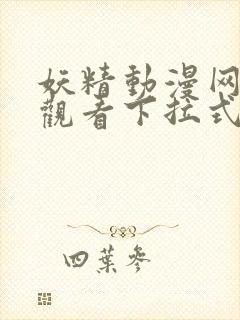 妖精動漫网
觀看下拉式
四葉參